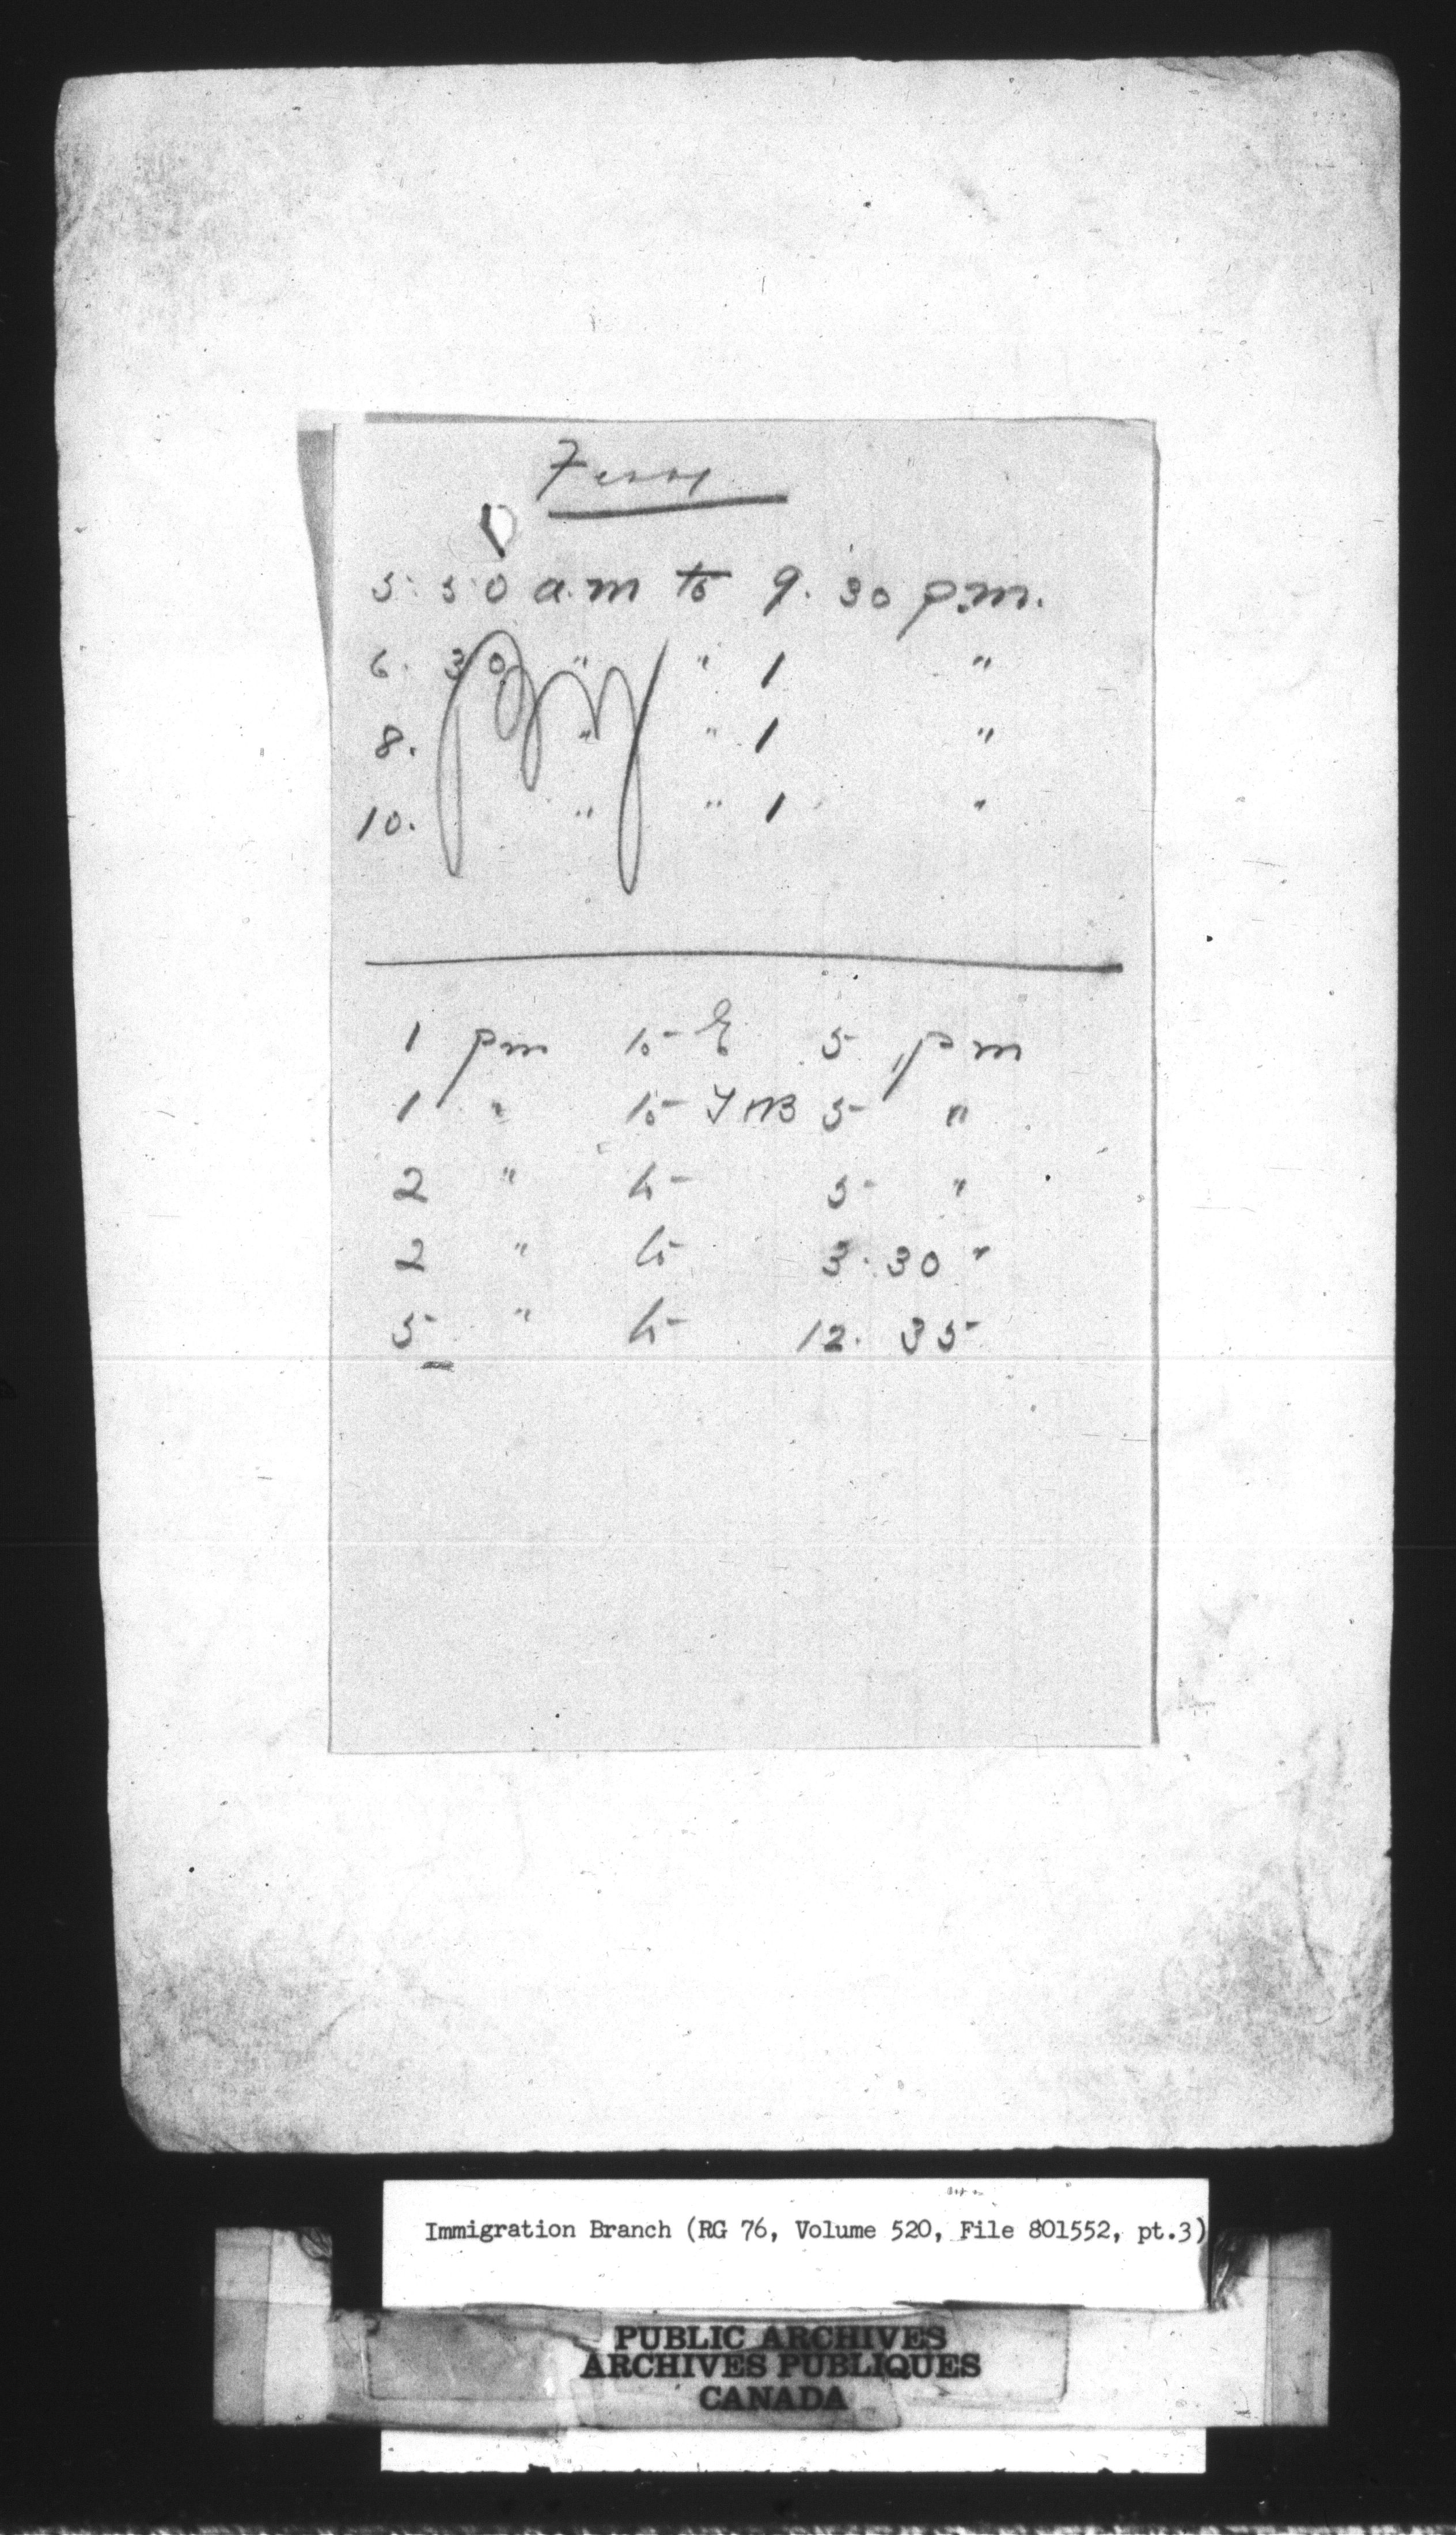 Ferry
5:50 a.m to 9.30 p.m.
6.30 " " 1 "
8. " " 1 "
10. " " 1 "
1 pm to 5 pm
1 " to 5 "
2 " to 5 "
2 " to 3.30 "
5 " to 12.35
Immigration Branch (RG 76, Volume 520, File 801552, pt.3)
PUBLIC ARCHIVES
ARCHIVES PUBLIQUES
CANADA